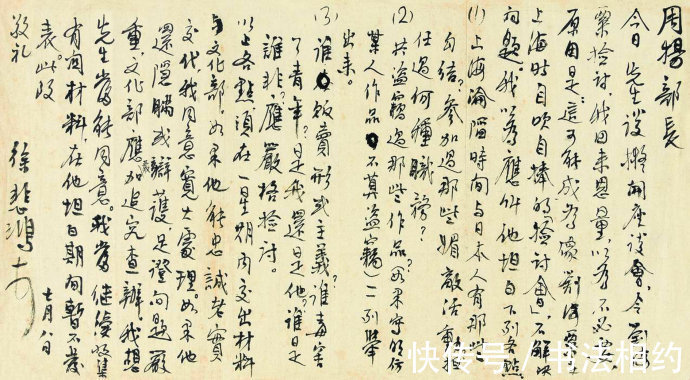 周揚部長
今日先生談擬開座談會,令劉海
粟檢討,我回来思量,以為不必要
原因是:這可能成為像劉海粟
上海時自吹自捧的“檢討會”,不解決
问題。我以為應叫他坦白下列各點
(1)上海淪陷時间与日本人有那些
勾结?參加過那些媚敵活動?
任過何種職務?
(2)共盜竊過那些作品?如果
某人作品不莫盜竊,一一列舉
出来。
(3)誰販賣形式主義?誰毒害
了青年?是我還是他?誰是
誰非?應嚴格檢討。
以上各點,須在一星期内交出材料
与文化部,如果他能忠誠老實
交代,我同意寬大處理。如果他
還隱瞞或辯護,足證问題嚴
重,文化部應嚴加追究查辦。我想
先生當能同意。我當继續收集
有関材料,在他坦白期间暫不發
表。此致
敬礼
徐悲鴻
七月八日
快传号/书法相约